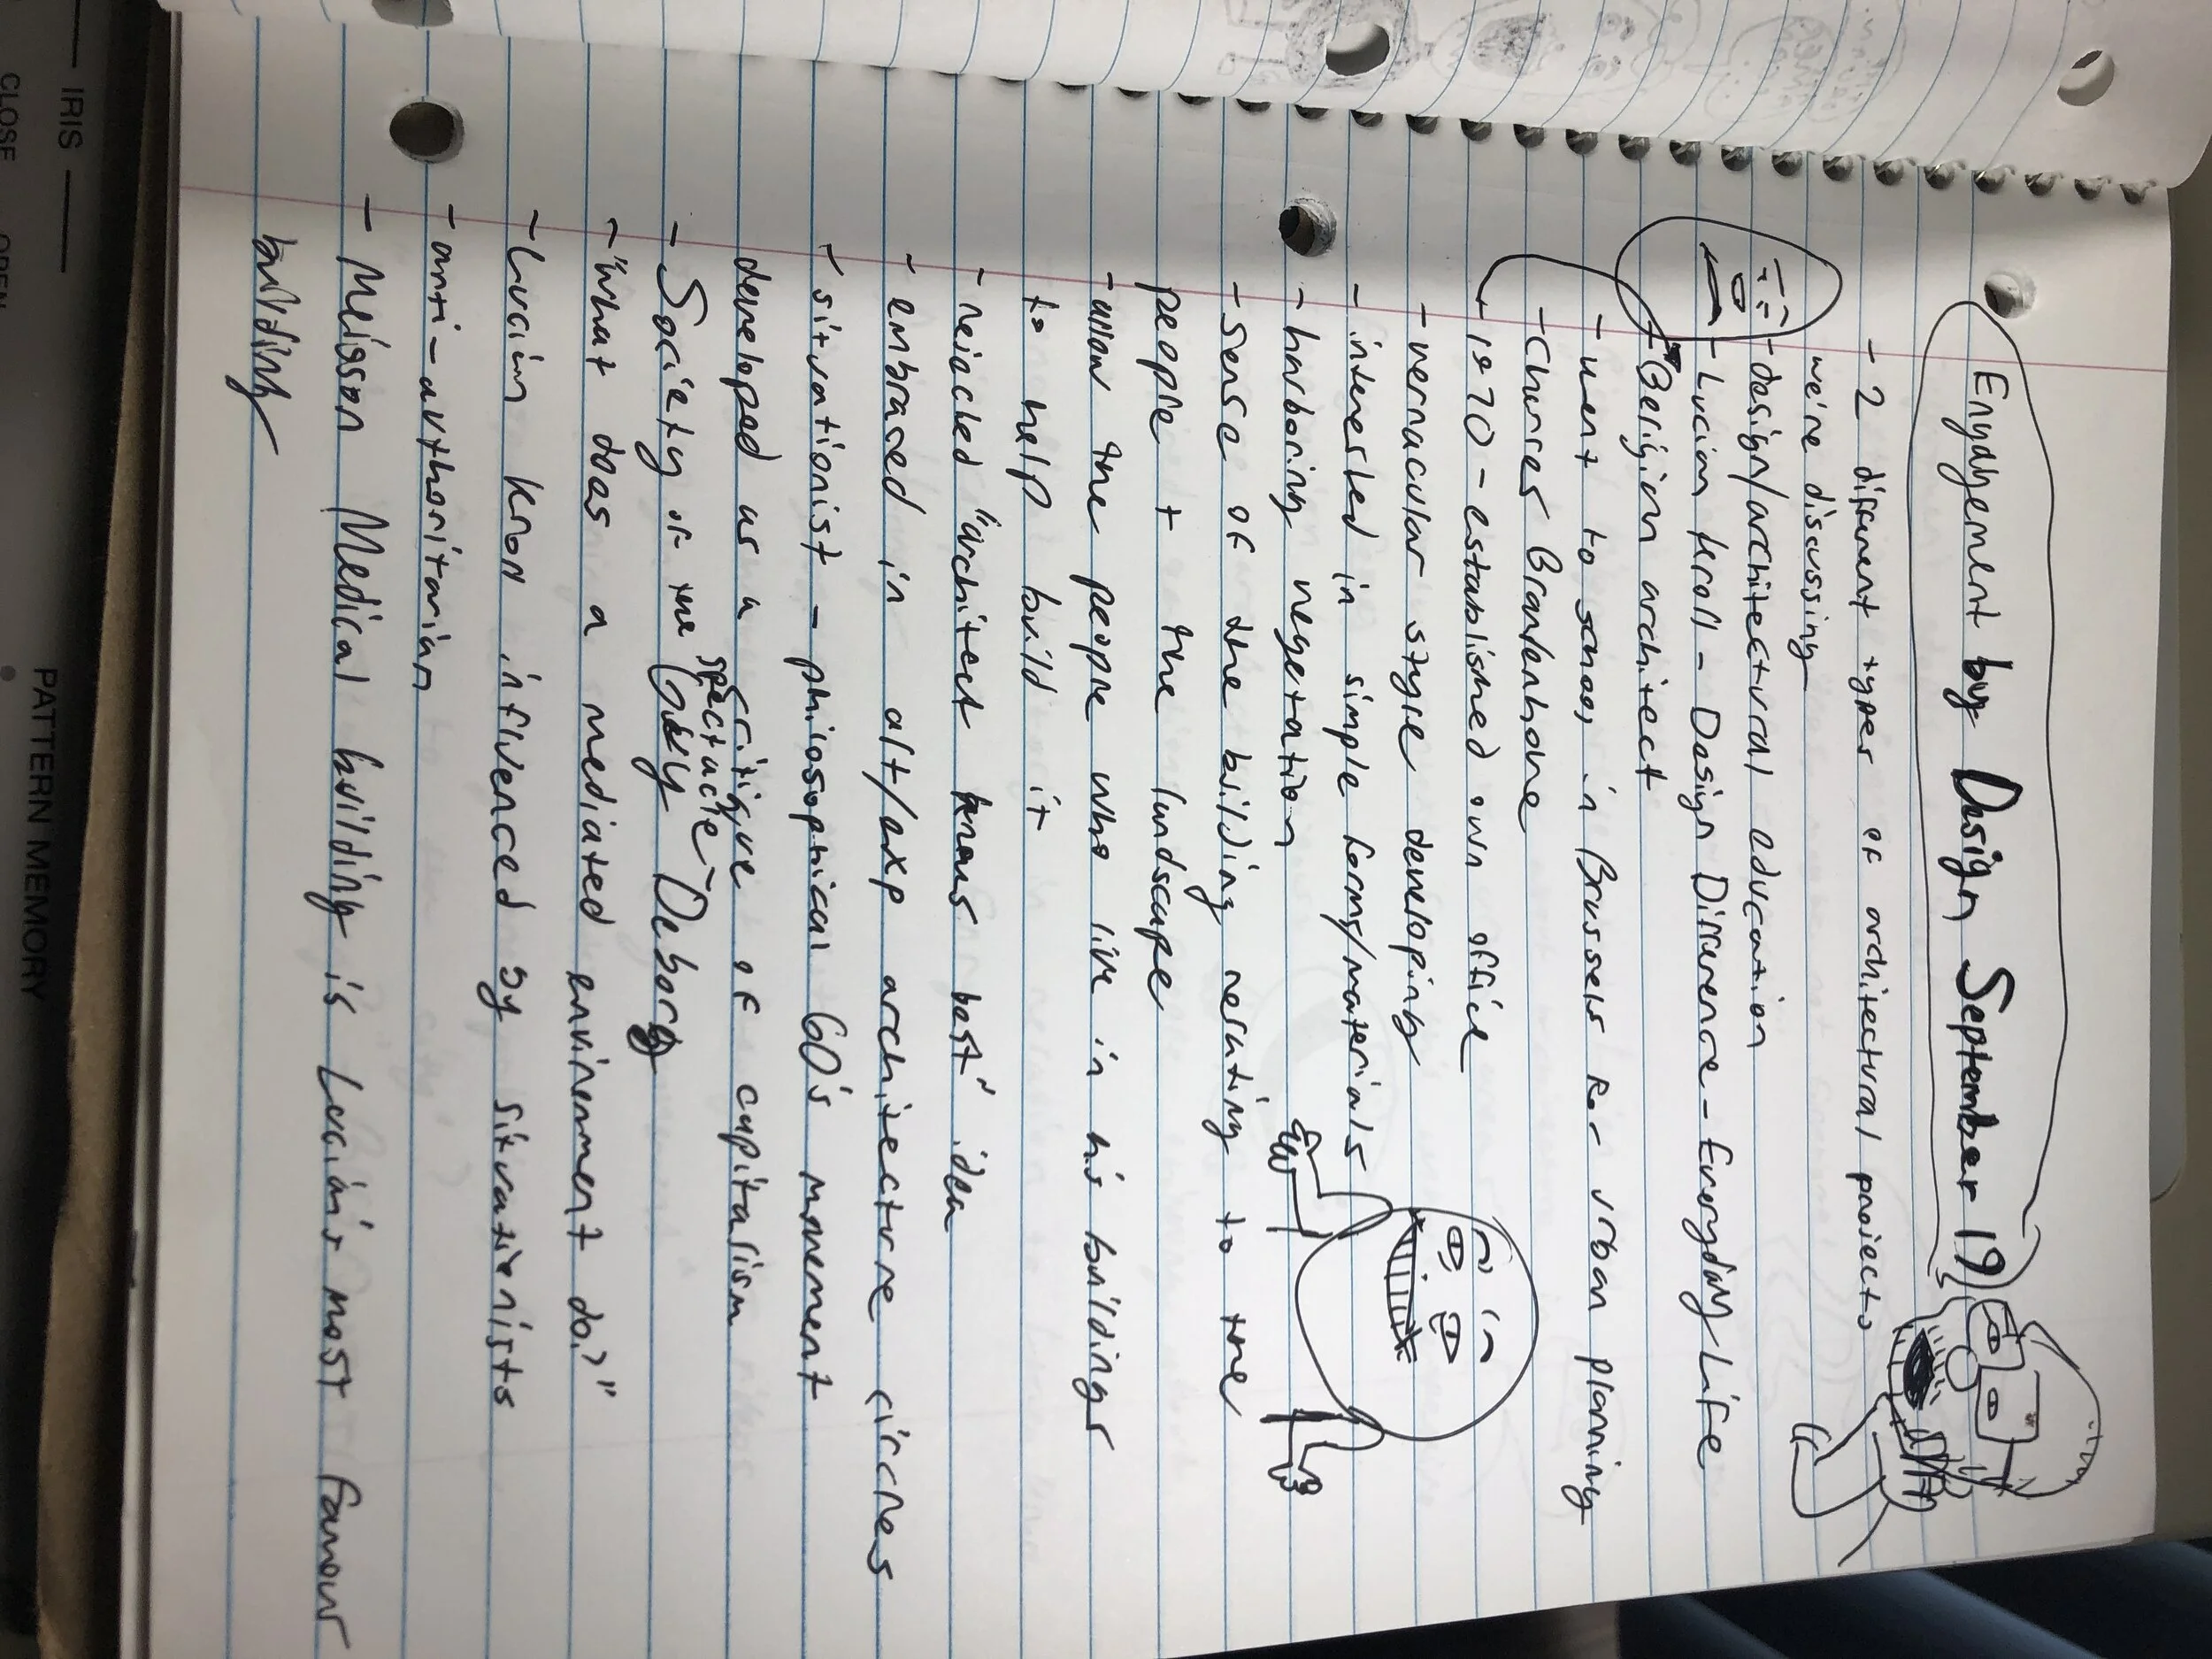 Engagement by Design September 19
- 2 diffrent types of architectural projects
we're discussing
- design/architectural education
- Lucian Kroll - Design Difference - Everyday Life
- Beligian architect
- went to school in Brussels for urban planning
- Charles Brandenhove
- 1970 - established own office
- vernacular style developing
- interested in simple forms/materials
- harboring vegetation
- sense of the building relating to the
people + the landscape
- allow the people who live in his buildings
to help build it
- rejected "architect knows best" idea
- embraced in alt/exp architecture circles
- situationist - phiosophical 60's movement
developed as a critique of capitalism
- Society of the Spectacle - Guy Deborg
- "What does a mediated envirenment do?"
- Lucian Kron influenced by situationists
- anti-authoritarian
- Meison Medical building is Lucian's most famous
building
IRIS
CLOSE
OPEN
PATTERN MEMORY